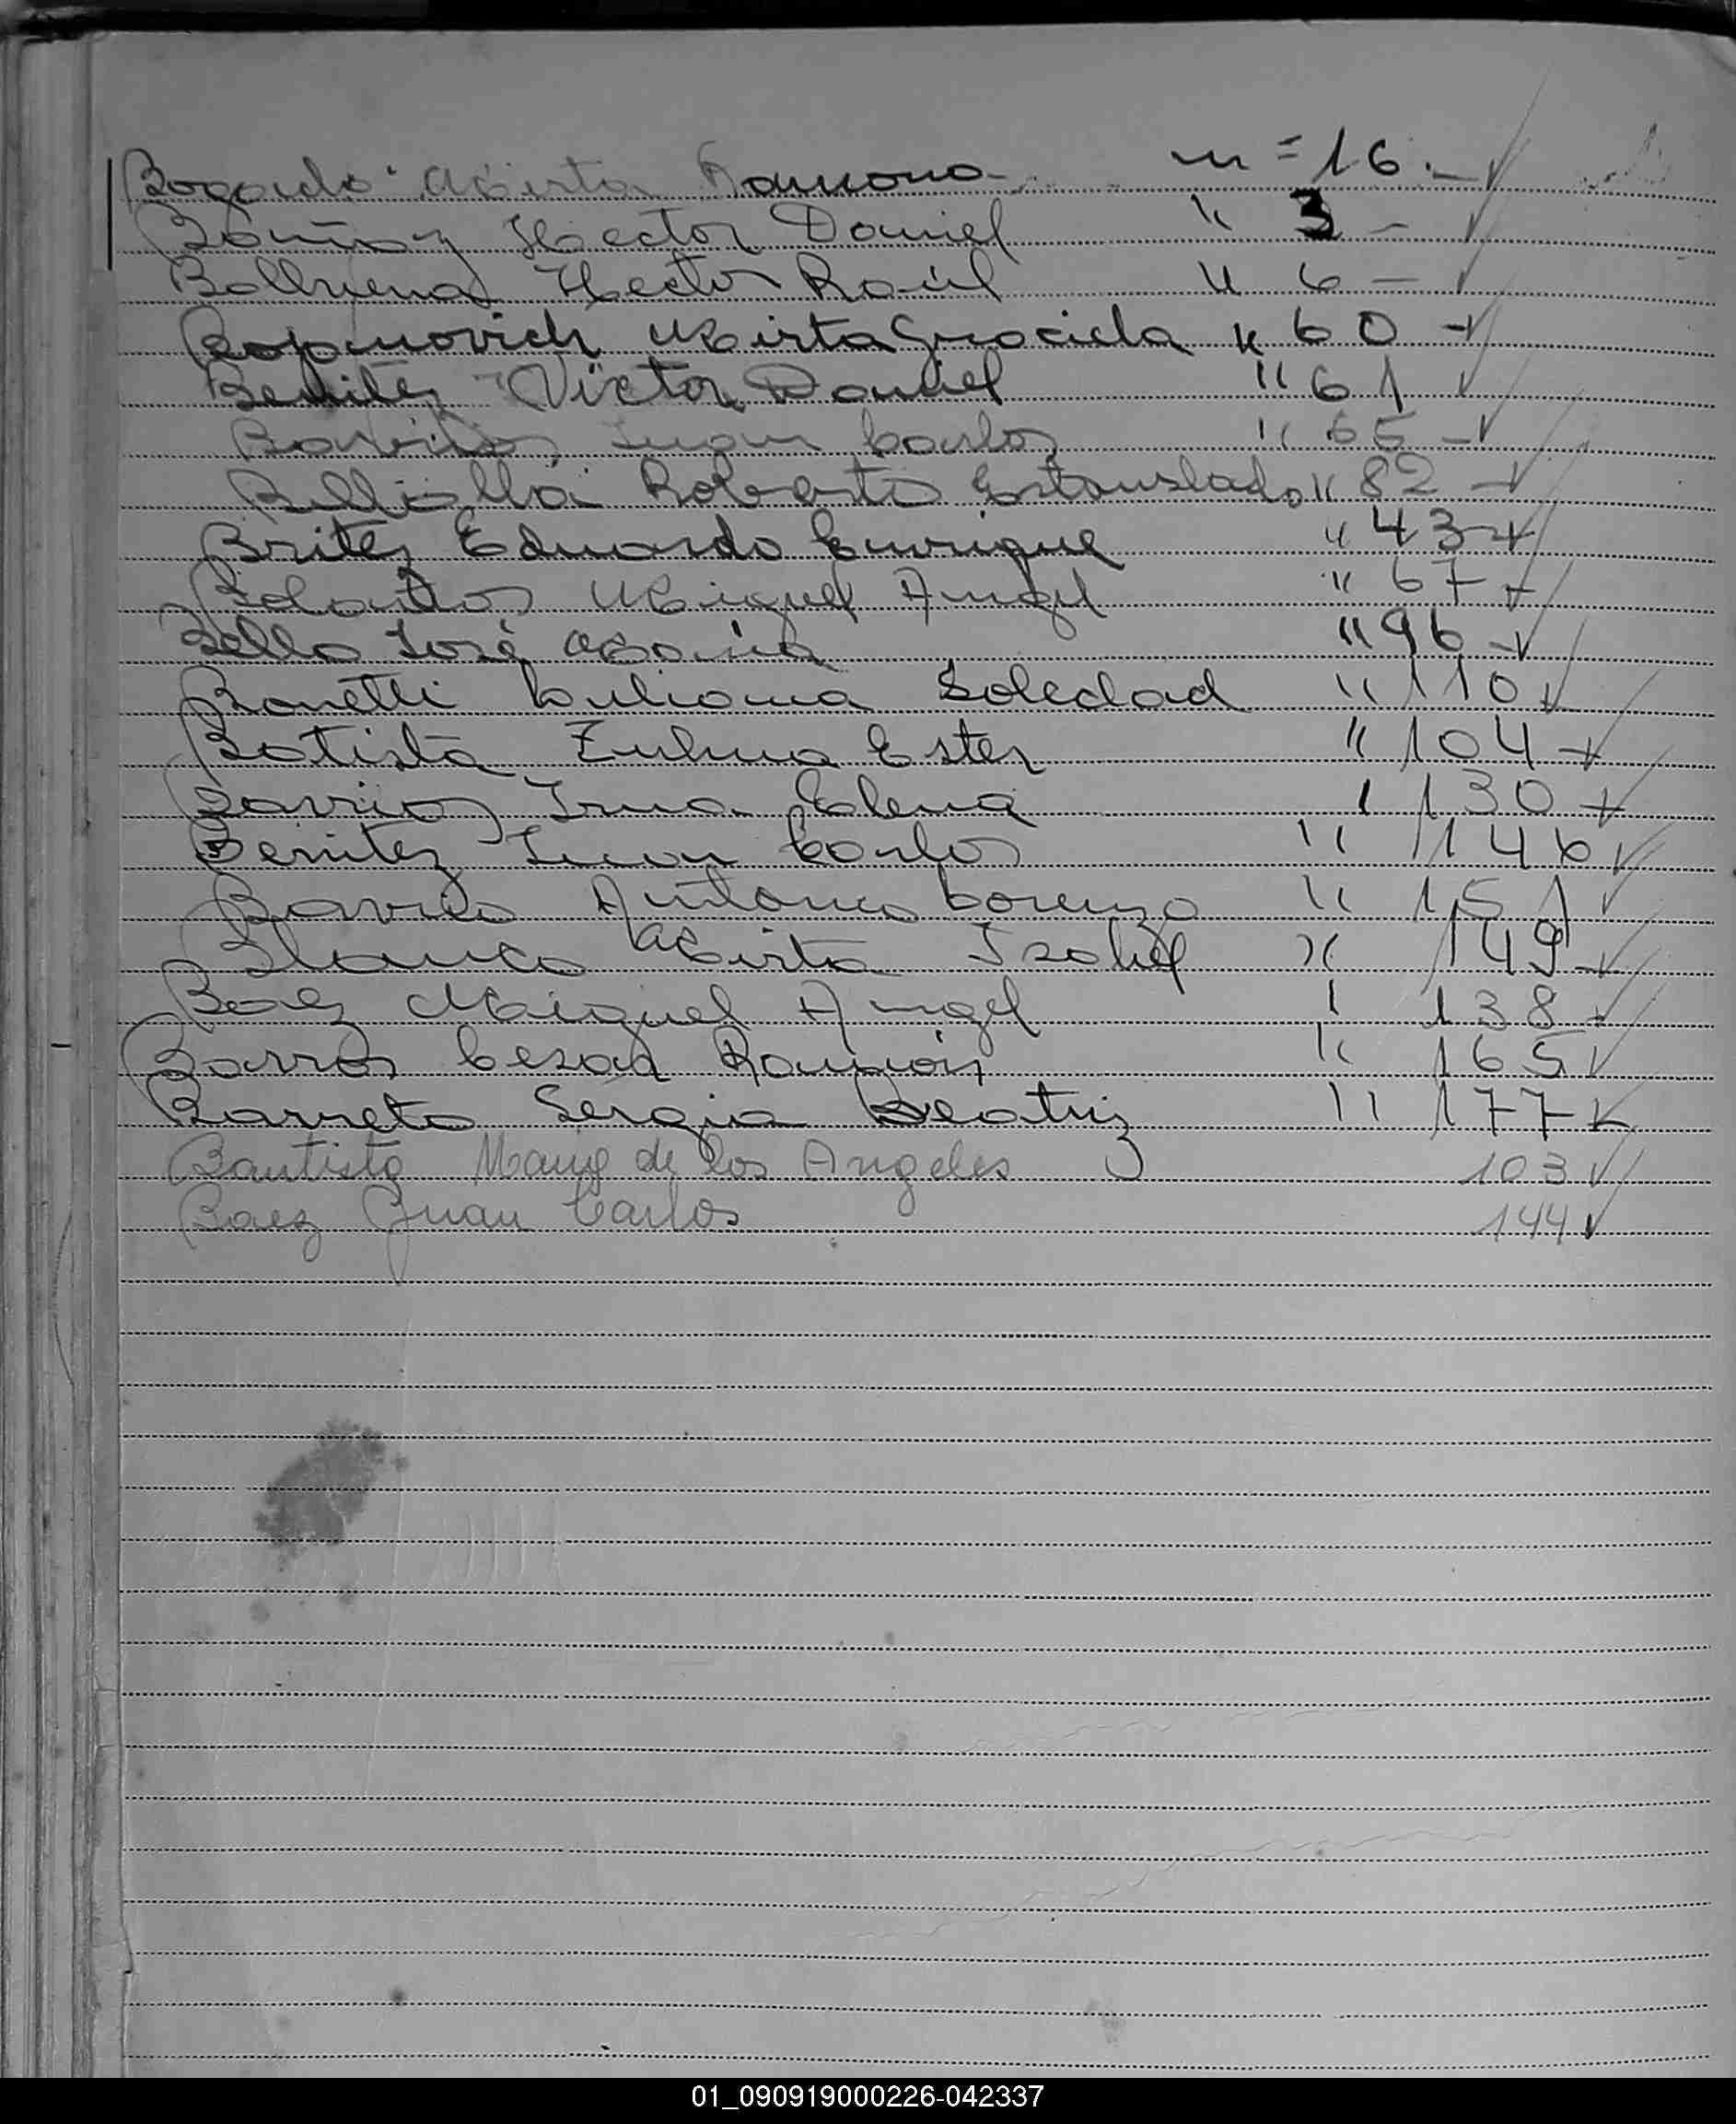 Bogado Mirta Ramona n = 16. -
Hector Daniel " 3 -
Hector Raúl " 6 -
Mirta Graciela " 60 -
Benitez Victor Daniel " 61
Juan Carlos " 65 -
Roberto Estanislado " 82 -
Britez Eduardo Enrique " 43 -
Miguel Angel " 67 -
Bello José Maria " 96 -
Bonetti Juliana Soledad " 110
Batista Zulma Ester " 104 -
Barrios Irma Elena " 130 -
Benitez Juan Carlos " 146
Antonio Lorenzo " 151
Blanco Mirta Isabel " 149 -
Baez Miguel Angel " 138 -
Barros Cesar Ramón " 165
Barreto Sergia Beatriz " 177
Bautista Maria de los Angeles 103
Baez Juan Carlos 144
01_090919000226-042337